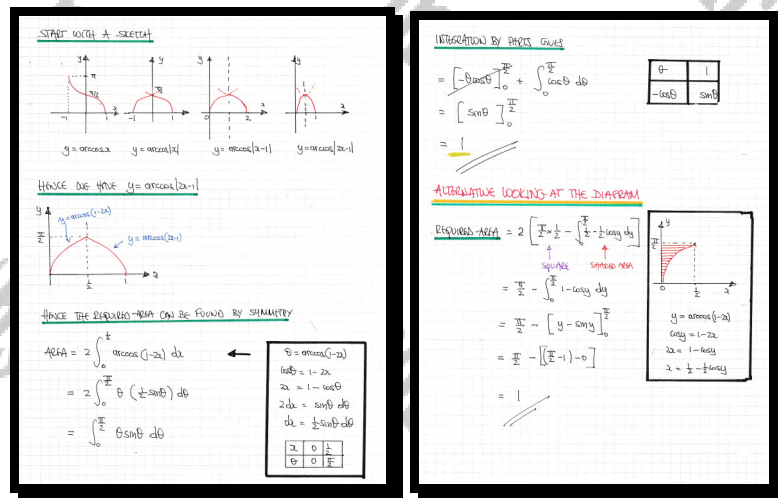 START WITH A SKETCH
y y y y
π
π/2 π/2
-1 1 x -1 1 x 0 2 x 0 1 x
y = arccosx y = arccos|x| y = arccos|x-1| y = arccos|2x-1|
HENCE WE HAVE y = arccos|2x-1|
y
y = arccos(1-2x)
π/2
y = arccos(2x-1)
1/2 1 x
HENCE THE REQUIRED AREA CAN BE FOUND BY SYMMETRY
AREA = 2 ∫₀^(1/2) arccos(1-2x) dx
= 2 ∫₀^(π/2) θ (½ sinθ) dθ
= ∫₀^(π/2) θ sinθ dθ
θ = arccos(1-2x)
cosθ = 1-2x
2x = 1-cosθ
2dx = sinθ dθ
dx = ½ sinθ dθ
x 0 ½
θ 0 π/2
INTEGRATION BY PARTS GIVES
= [-θcosθ]₀^(π/2) + ∫₀^(π/2) cosθ dθ
= [sinθ]₀^(π/2)
= 1
θ 1
-cosθ sinθ
ALTERNATIVE LOOKING AT THE DIAGRAM
REQUIRED AREA = 2 [π/2 × ½ - ∫₀^(π/2) ½ - ½cosy dy]
SQUARE SHADED AREA
= π/2 - ∫₀^(π/2) 1-cosy dy
= π/2 - [y - siny]₀^(π/2)
= π/2 - [(π/2 - 1) - 0]
= 1
y
π/2
0 ½ x
y = arccos(1-2x)
cosy = 1-2x
2x = 1-cosy
x = ½ - ½cosy